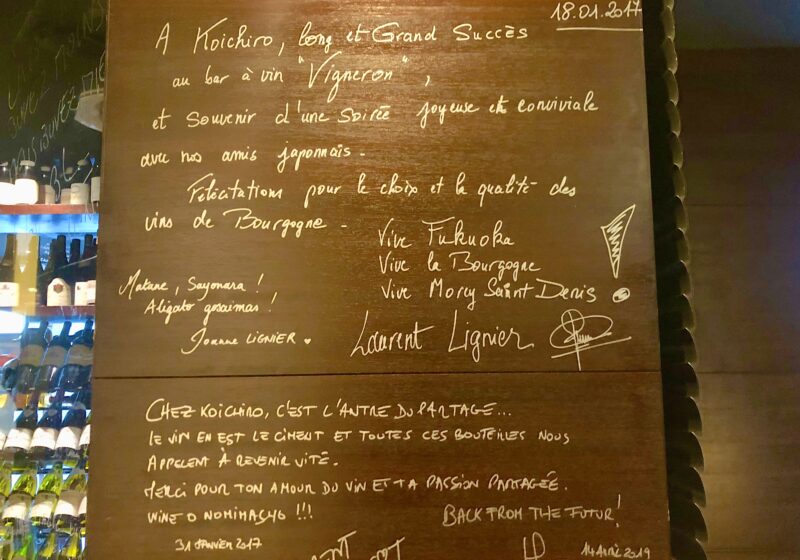 18.01.2017
A Koichiro, long et Grand Succès
au bar à vin "Vigneron",
et souvenir d'une soirée joyeuse et conviviale
avec nos amis japonnais.
Félicitations pour le choix et la qualité des
vins de Bourgogne.
Vive Fukuoka
Vive la Bourgogne
Vive Morey Saint Denis !
Matane, Sayonara !
Aligato gosaimas !
Joanne LIGNIER ♥
Laurent Lignier
CHEZ KOICHIRO, C'EST L'ANTRE DU PARTAGE...
LE VIN EN EST LE CIMENT ET TOUTES CES BOUTEILLES NOUS
APPELENT À REVENIR VITE.
MERCI POUR TON AMOUR DU VIN ET TA PASSION PARTAGÉE.
WINE O NOMIMASHO !!!
BACK FROM THE FUTUR !
31 JANVIER 2017
14 AVRIL 2019